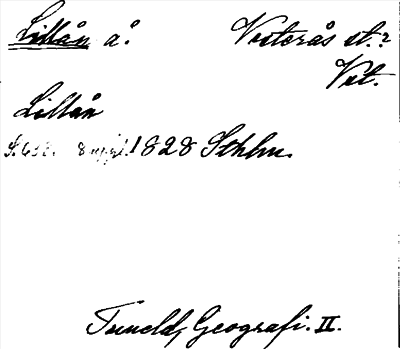 Lillån å. Västerås st.?
Vst.
Lillån
8 uppl. 1828 Sthlm.
Tuneld, Geografi. II.